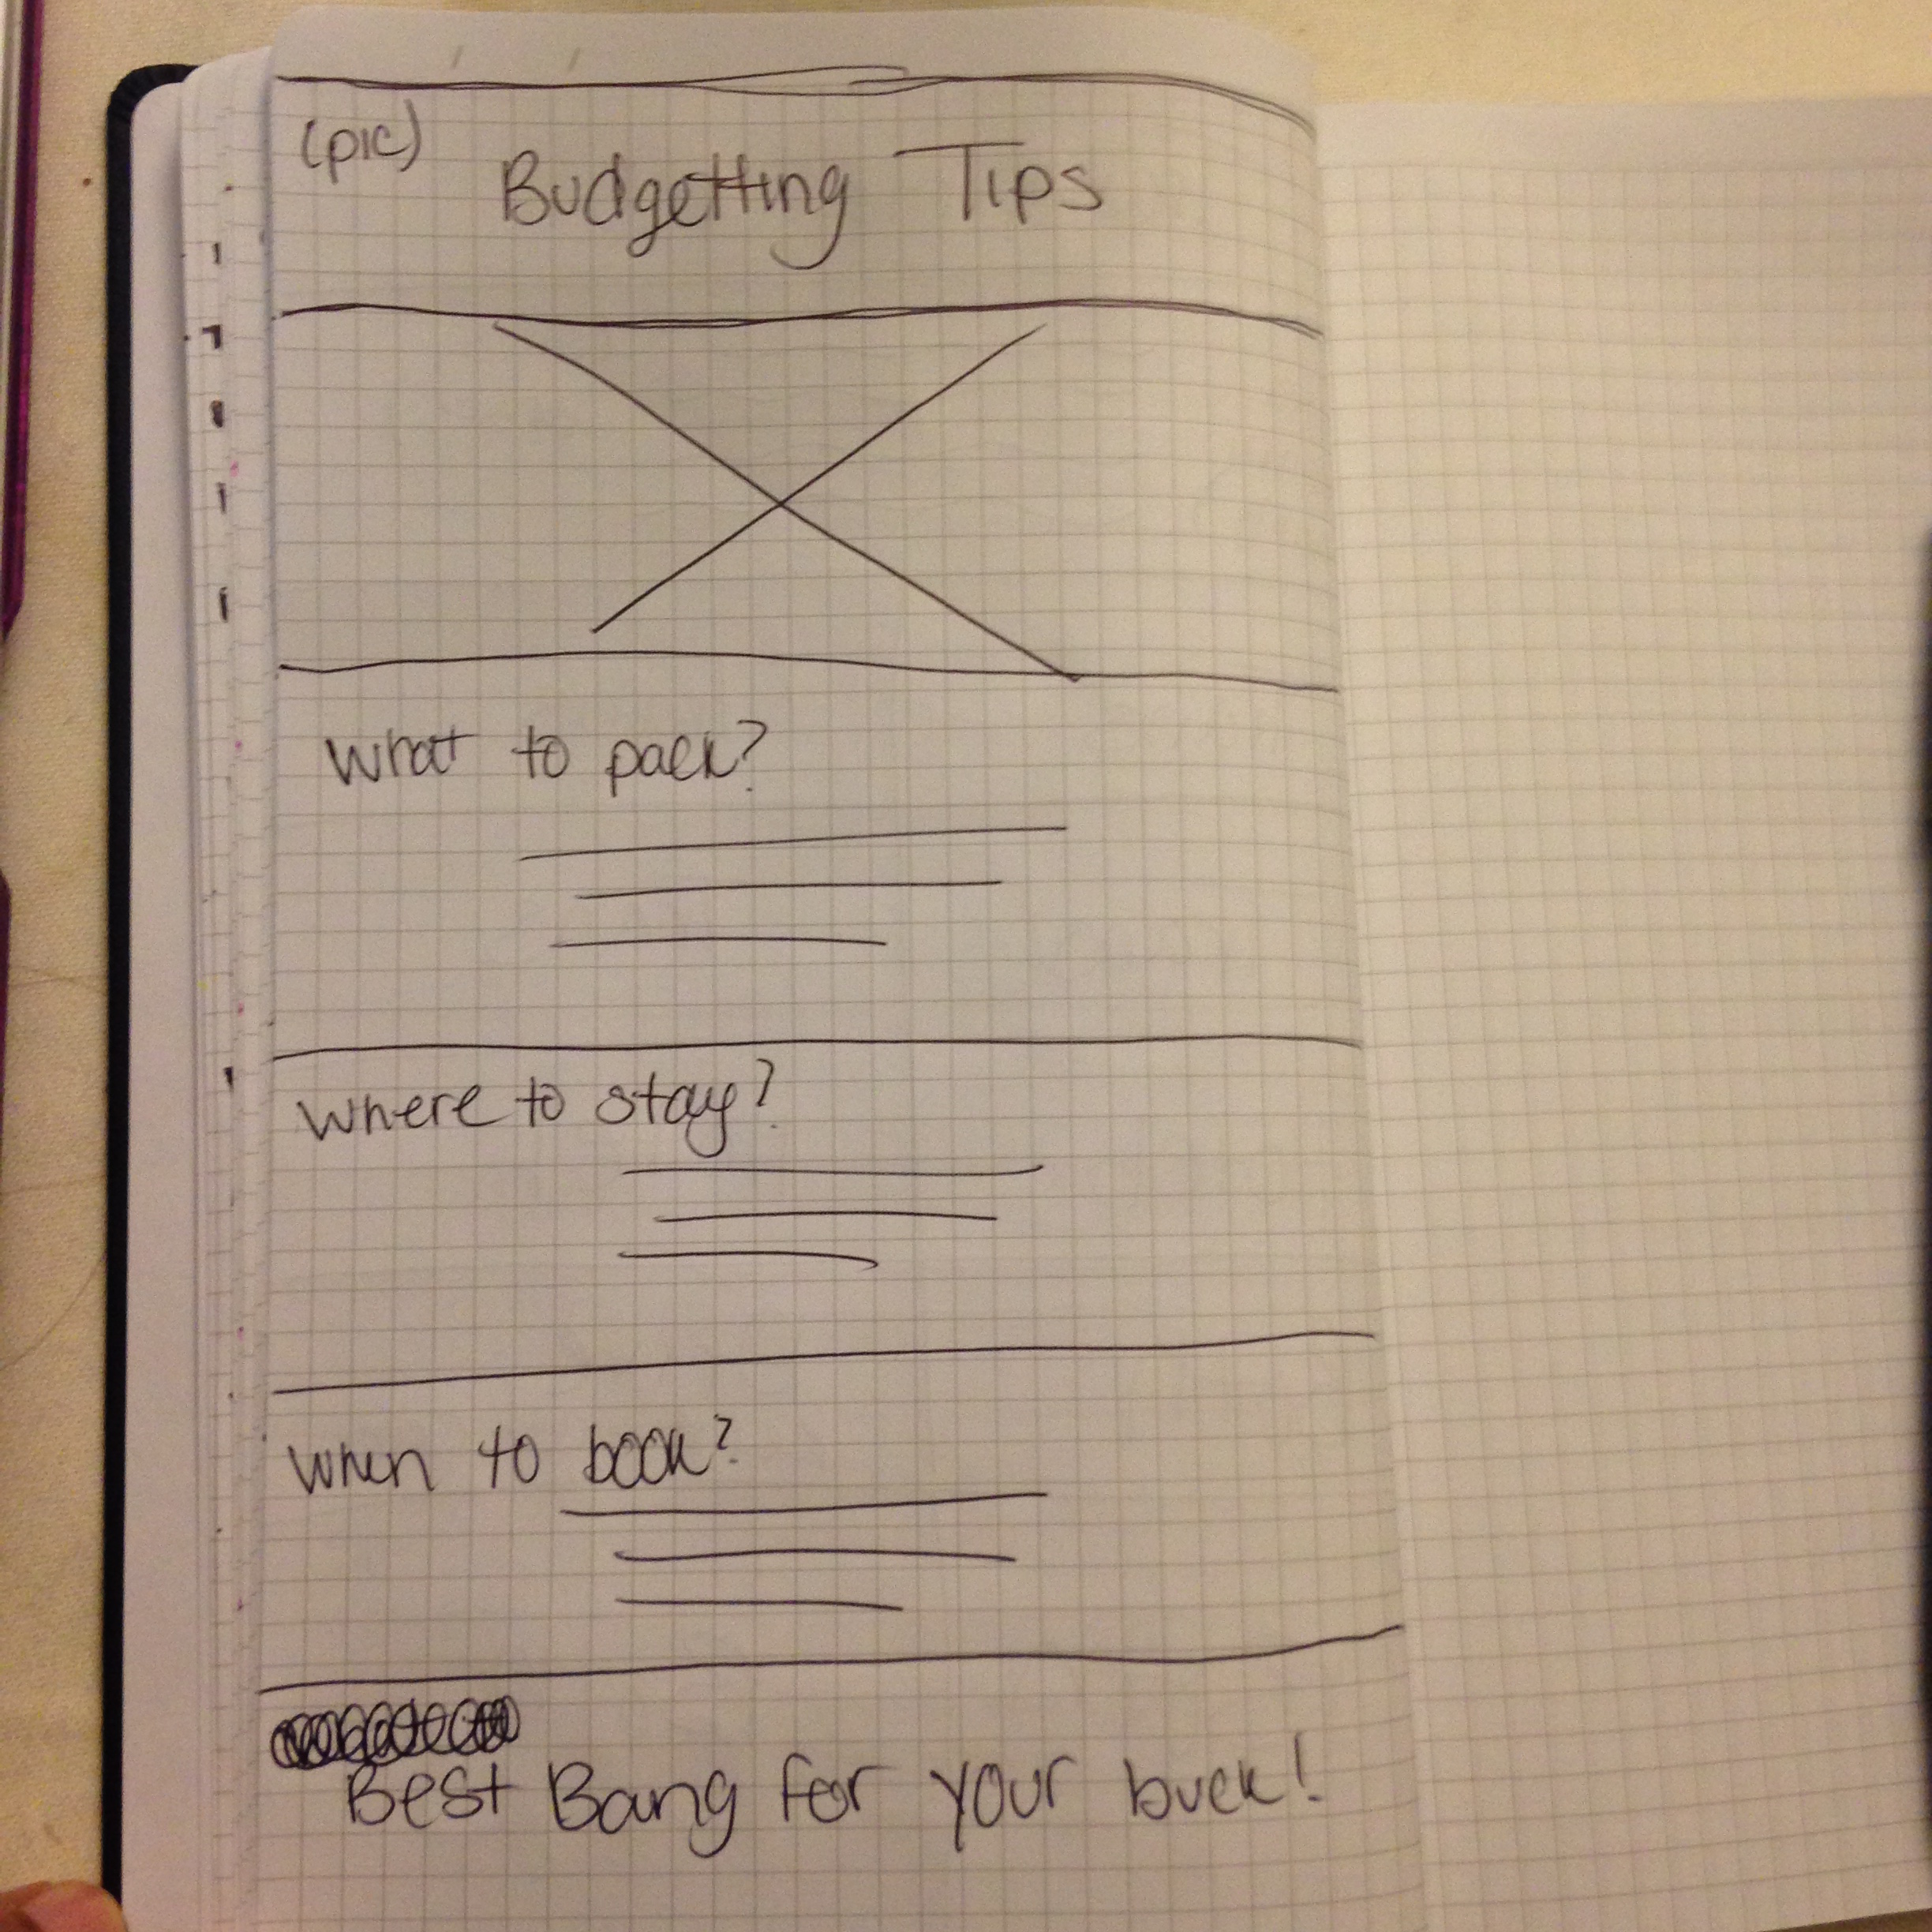 (pic)
Budgetting Tips
What to pack?
Where to stay?
When to book?
Best Bang for your buck!